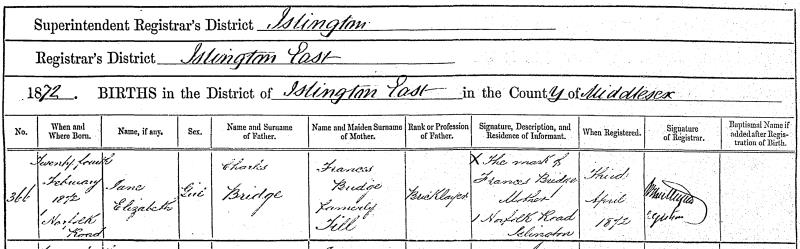 Superintendent Registrar's District Islington
Registrar's District Islington East
1872. BIRTHS in the District of Islington East in the County of Middlesex
No. When and Where Born. Name, if any. Sex. Name and Surname of Father. Name and Maiden Surname of Mother. Rank or Profession of Father. Signature, Description, and Residence of Informant. When Registered. Signature of Registrar. Baptismal Name if added after Registration of Birth.
366
Twenty fourth
February
1872
1 Norfolk
Road
Jane
Elizabeth
Girl
Charles
Bridge
Frances
Bridge
formerly
Till
Bricklayer
X The mark of
Frances Bridge
Mother
1 Norfolk Road
Islington
Third
April
1872
Registrar